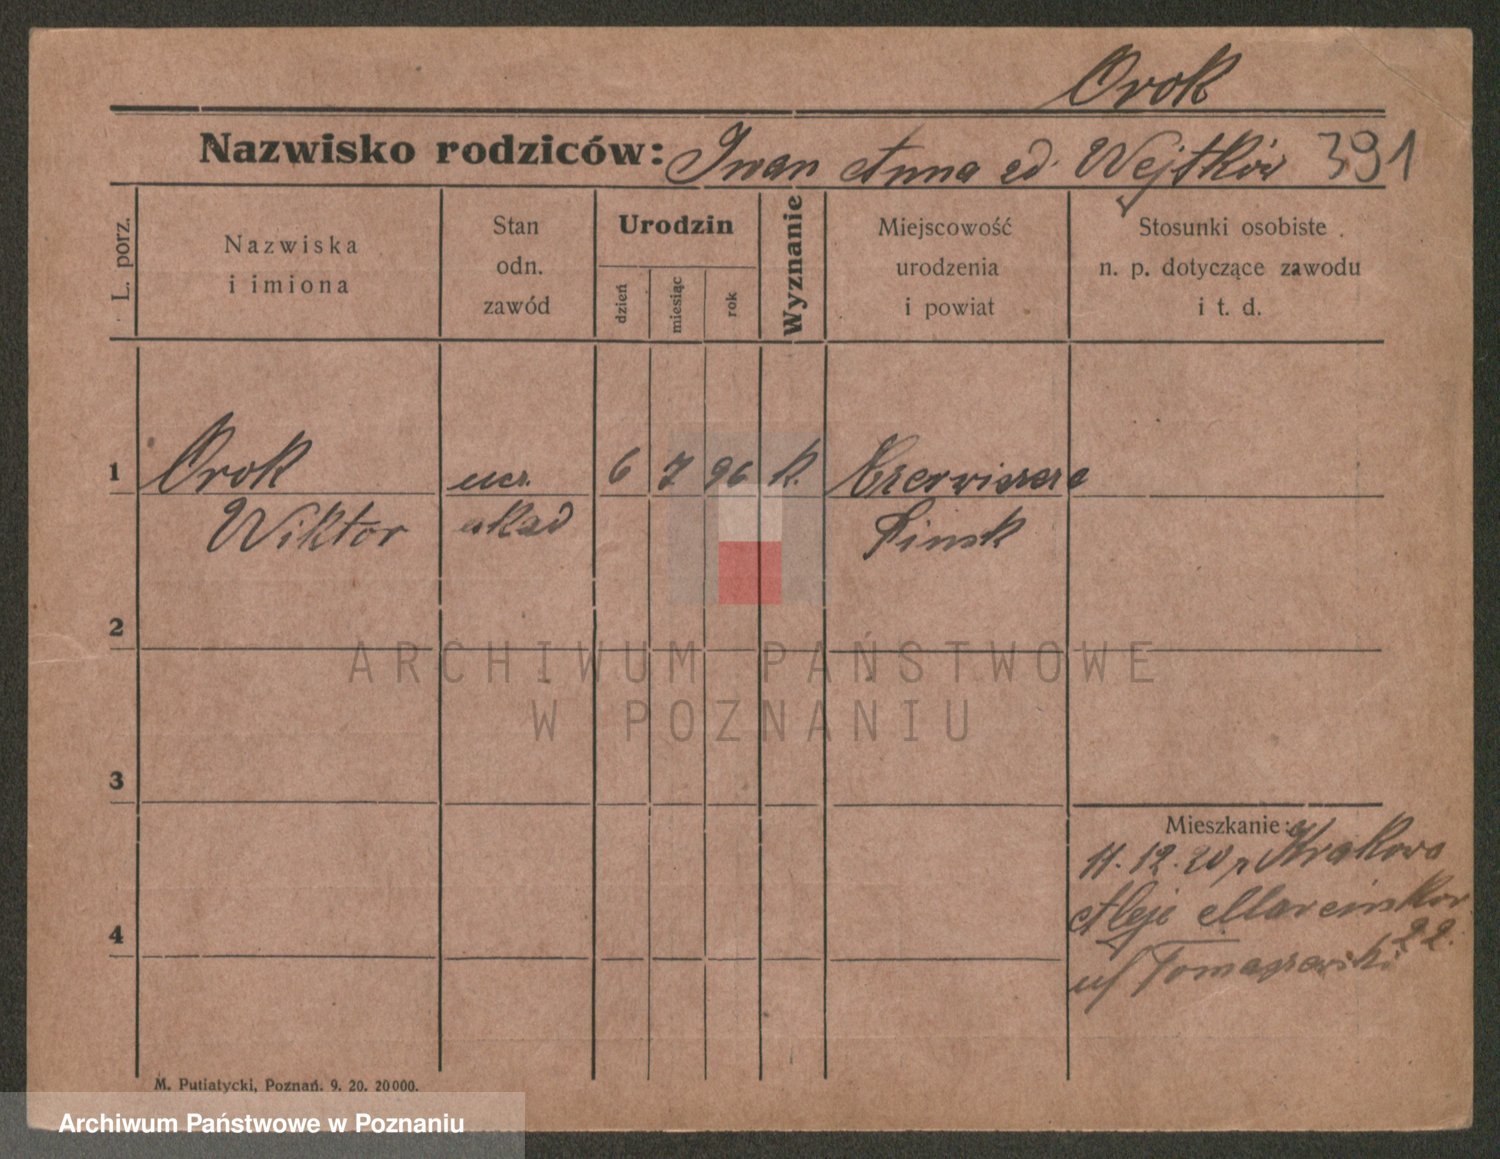 Orok
Nazwisko rodziców: Iwan Anna zd. Wejtków 391
L. porz.
Nazwiska
i imiona
Stan
odn.
zawód
Urodzin
dzień
miesiąc
rok
Wyznanie
Miejscowość
urodzenia
i powiat
Stosunki osobiste
n. p. dotyczące zawodu
i t. d.
1 Orok ucz. 6 7 96 k.
Wiktor akad Pinsk
2
ARCHIWUM PAŃSTWOWE
W POZNANIU
3
Mieszkanie:
11.12.20 z Krakowa
Aleje Marcinkow
22.
u/ Tomaszewski
4
M. Putiatycki, Poznań. 9. 20. 20000.
Archiwum Państwowe w Poznaniu